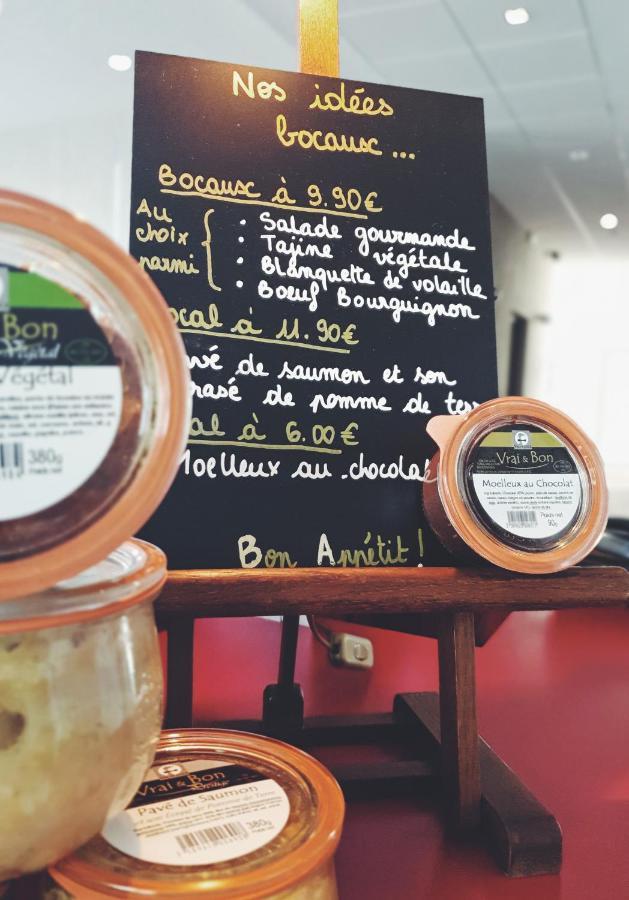 Nos idées
bocaux ...
Bocaux à 9.90€
Au
choix
parmi
• Salade gourmande
• Tajine végétale
• Blanquette de volaille
• Boeuf Bourguignon
ocal à 11.90€
vé de saumon et son
rasé de pomme de ter
al à 6.00€
Moelleux au chocolat
Bon Appétit !
Bon
Végétal
380g
Vrai & Bon
Moelleux au Chocolat
Poids net
90g
Vrai & Bon
Pavé de Saumon
et son Ecrasé de Pomme de Terre
380g